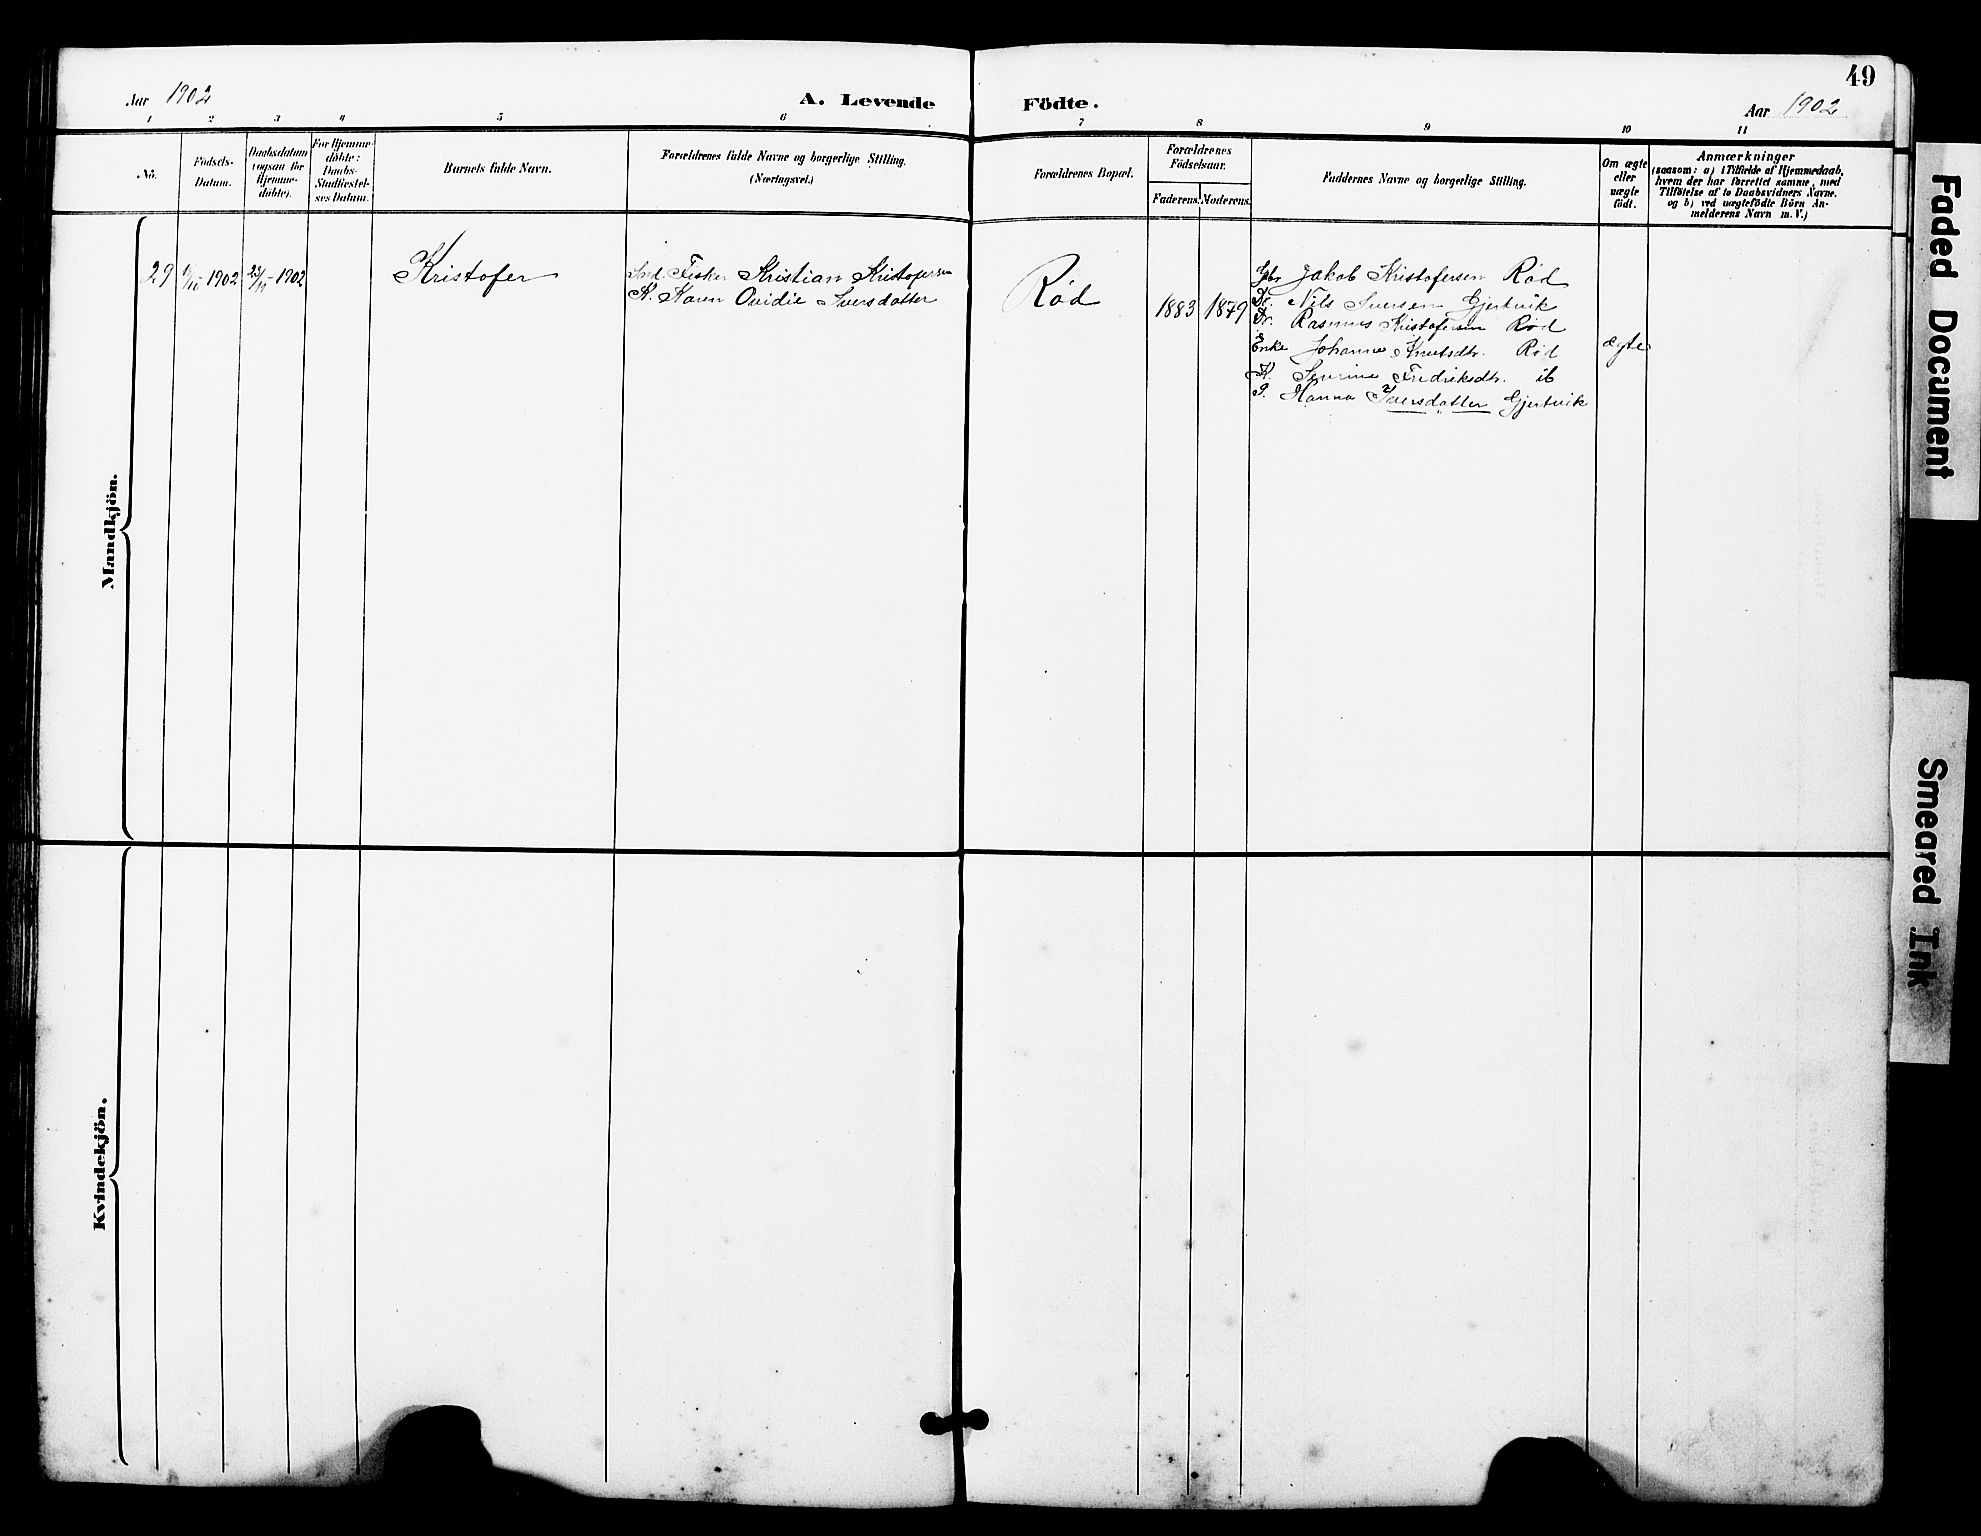 49
Aar 1902
A. Levende Födte.
Aar 1902
1 2 3 4 5 6 7 8 9 10 11
No.
Födsels-
Datum.
Daabsdatum
(ogsaa for
Hjemme-
döbte).
For Hjemme-
döbte:
Daabs-
Stadfæstel-
ses Datum.
Barnets fulde Navn.
Forældrenes fulde Navne og borgerlige Stilling.
(Næringsvei.)
Forældrenes Bopæl.
Forældrenes
Födselsaar.
Faderens. Moderens.
Faddernes Navne og borgerlige Stilling.
Om ægte
eller
uægte
födt.
Anmærkninger
(saasom: a) i Tilfælde af Hjemmedaab,
hvem der har forrettet samme, med
Tilföielse af to Daabsvidners Navne.
og b) ved uægtefödte Börn An-
melderens Navn m.V.)
Mandkjön.
29
1902
23/11 1902
Kristofer
Ind. Fisker Kristian Kristofersen
K. Karen Ovidie Iversdatter
Rød
1883
1879
Gbr Jakob Kristofersen Rød
Dr. Nils Iversen Gjertvik
Dr. Rasmus Kristofersen Rød
Enke Johanne Knutsdtr. Rød
K. Severine Fredriksdtr. ib
P. Hanna Iversdatter Gjertvik
ægte
Kvindekjön.
Faded Document
Smeared Ink